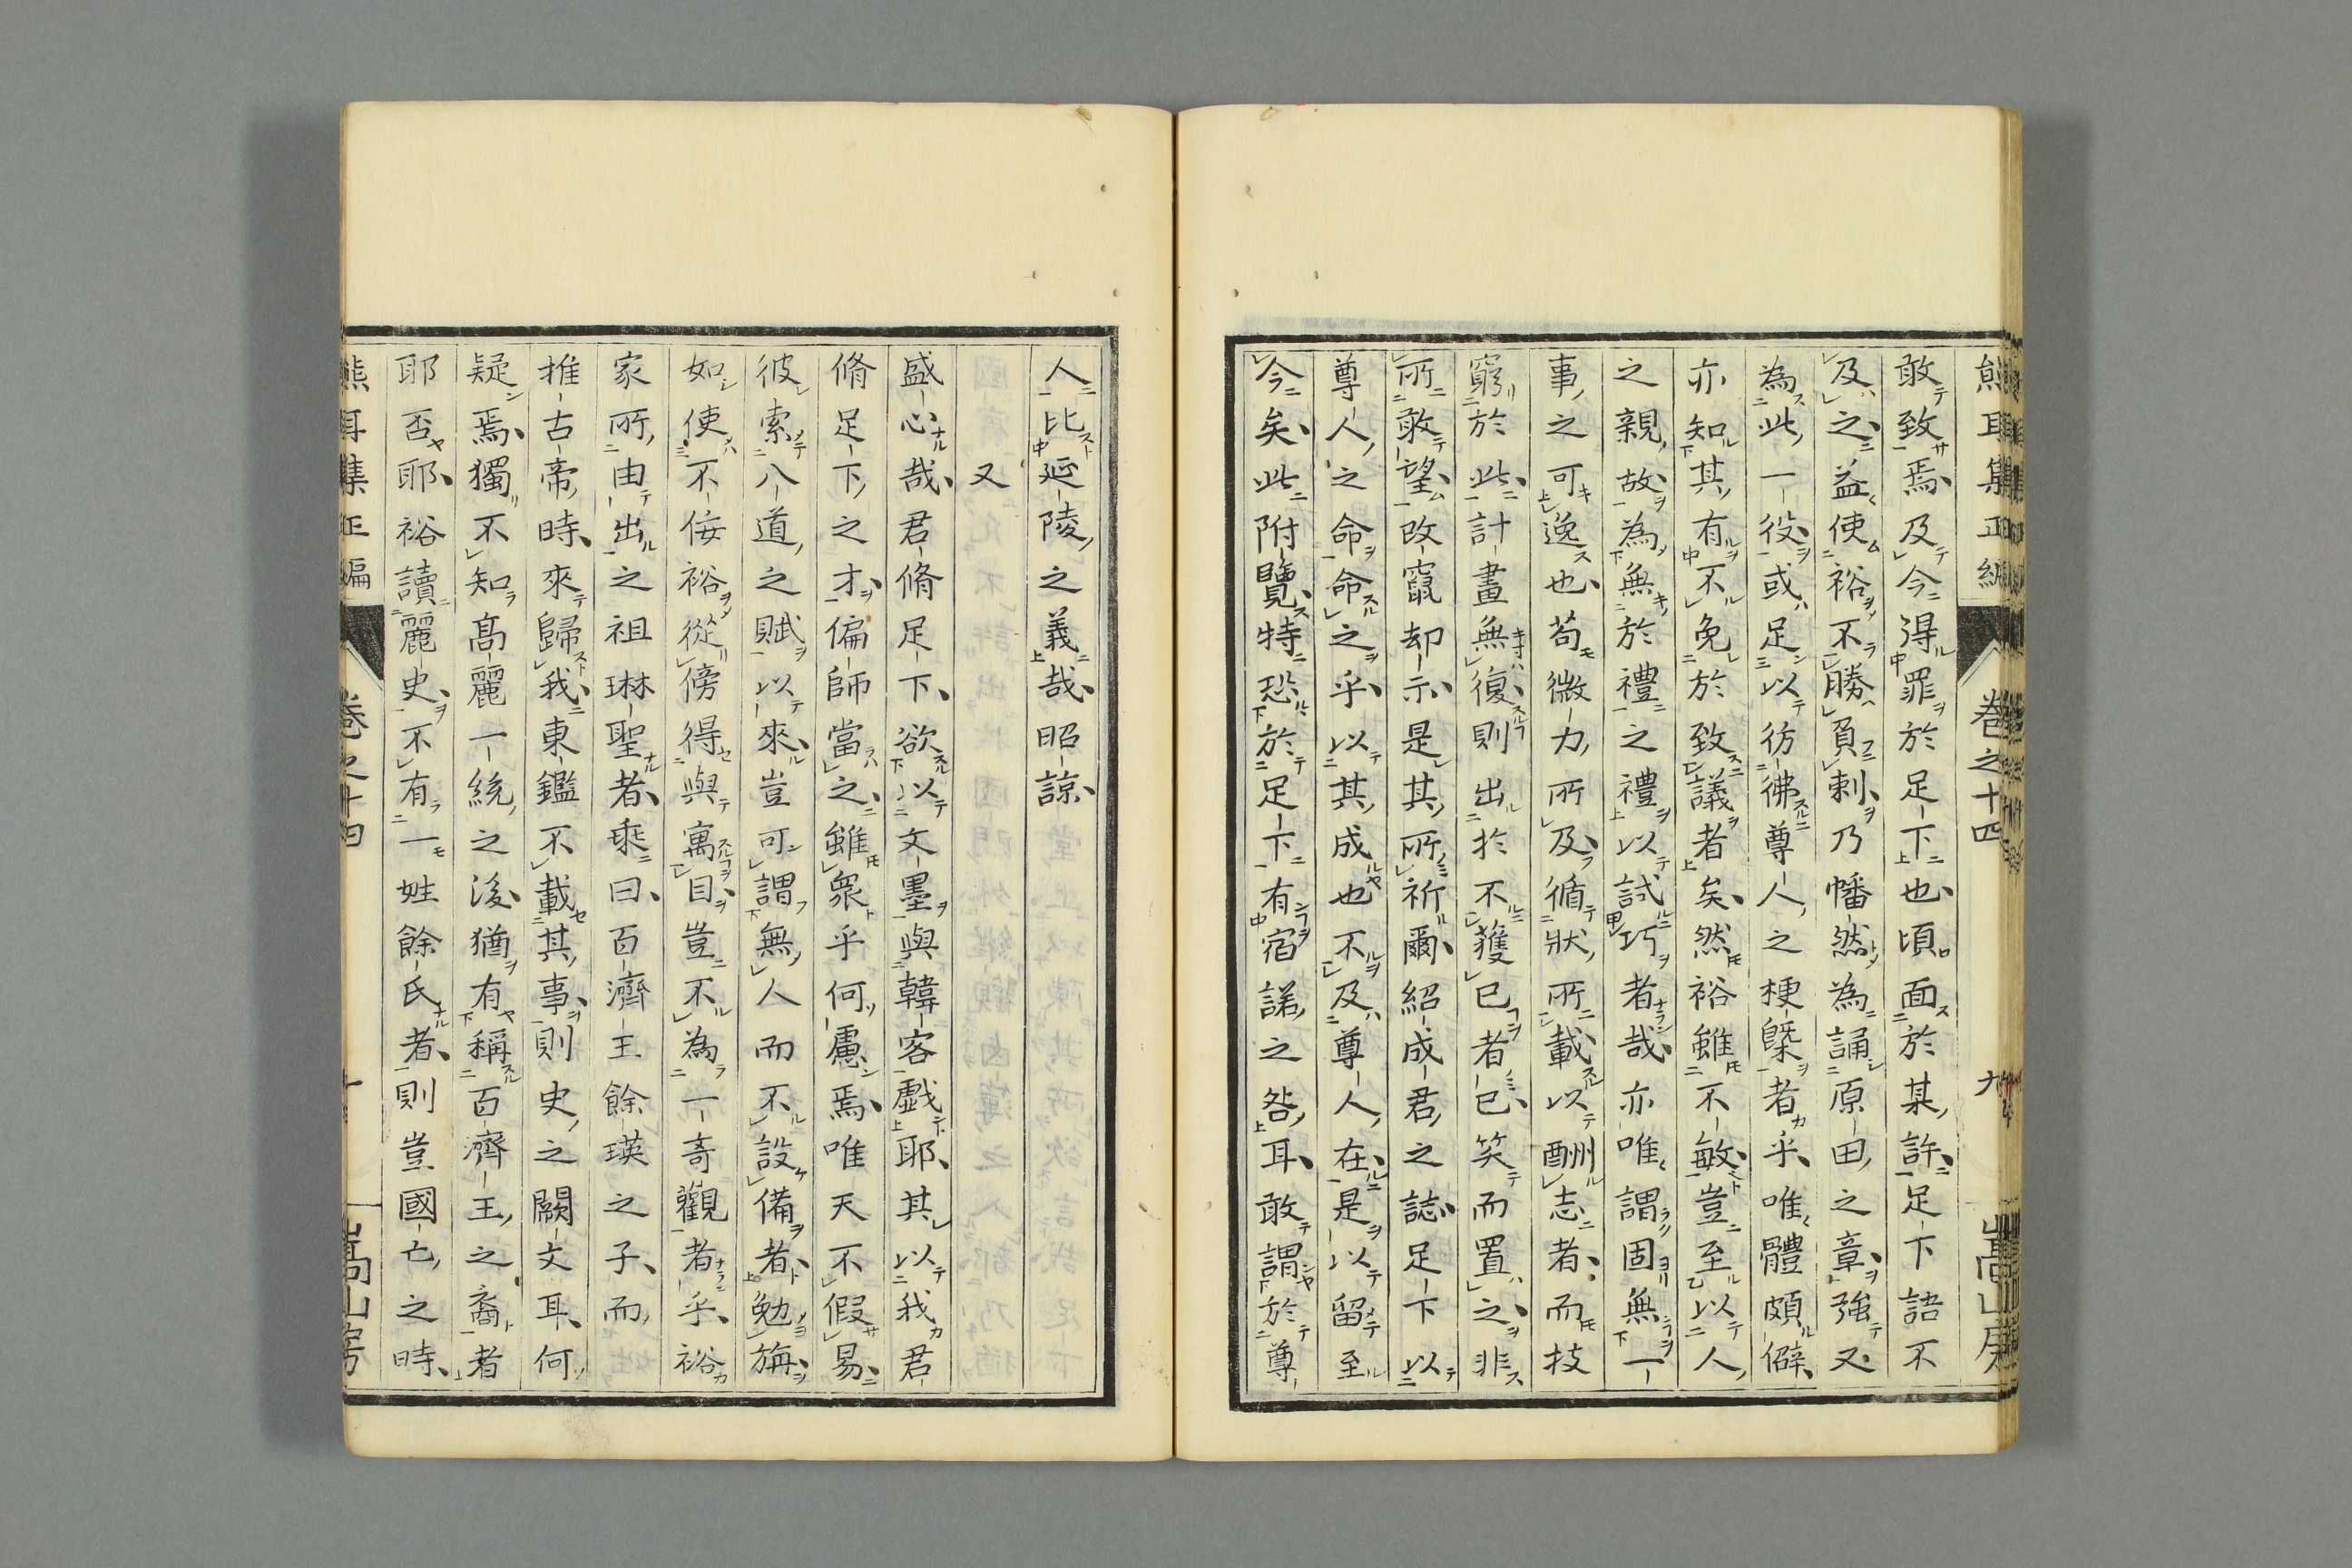 熊耳集正編 卷之十四 九 嵩山房
敢致焉及今得罪於足下也頃面於某許足下語不
及之益使裕不勝負剌乃幡然為誦原田之章強又
為此一役或足以彷彿尊人之梗槩者乎唯體頗僻
亦知其有不免於致議者矣然裕雖不敏豈至以人
之親故為無於禮之禮以試巧者哉亦唯謂固無一
事之可逸也苟微力所及循狀所載以酬志者而技
窮於此計畫無復則出於不獲已者已笑而置之非
所敢望改竄却示是其所祈爾紹成君之誌足下以
尊人之命命之乎以其成也不及尊人在是以留至
今矣此附覽特恐於足下有宿諾之咎耳敢謂於尊
人比延陵之義哉昭諒
又
盛心哉君脩足下欲以文墨與韓客戲耶其以我君
脩足下之才偏師當之雖衆乎何慮焉唯天不假易
彼索八道之賦以來豈可謂無人而不設備者勉旃
如使不佞裕從傍得與寓目豈不為一奇觀者乎裕
家所由出之祖琳聖者乘曰百濟王餘璟之子而
推古帝時來歸我東鑑不載其事則史之闕文耳何
疑焉獨不知髙麗一統之後猶有稱百濟王之裔者
耶否耶裕讀麗史不有一姓餘氏者則豈國亡之時
熊耳集正編 卷之十四 十 嵩山房